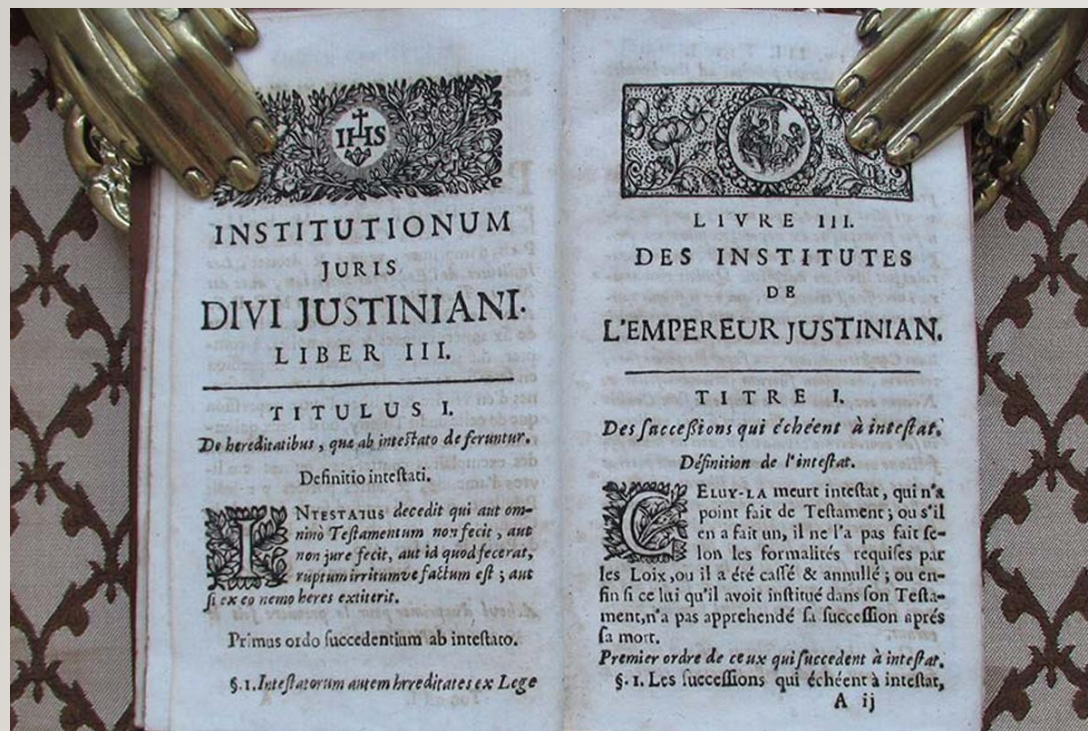 IHS
INSTITUTIONUM
JURIS
DIVI JUSTINIANI.
LIBER III.
TITULUS I.
De hereditatibus, quæ ab intestato deferuntur.
Definitio intestati.
INTESTATUS decedit qui aut om-
ninò Testamentum non fecit, aut
non jure fecit, aut id quod fecerat,
ruptum irritumve factum est ; aut
si ex eo nemo heres extiterit.
Primus ordo succedentium ab intestato.
§. 1. Intestatorum autem hæreditates ex Lege
LIVRE III.
DES INSTITUTES
DE
L'EMPEREUR JUSTINIAN.
TITRE I.
Des successions qui échéent à intestat.
Définition de l'intestat.
CELUY-LA meurt intestat, qui n'a
point fait de Testament ; ou s'il
en a fait un, il ne l'a pas fait se-
lon les formalités requises par
les Loix, ou il a été cassé & annullé ; ou en-
fin si ce lui qu'il avoit institué dans son Testa-
ment, n'a pas apprehendé sa succession aprés
sa mort.
Premier ordre de ceux qui succedent à intestat.
§. 1. Les successions qui échéent à intestat,
A ij